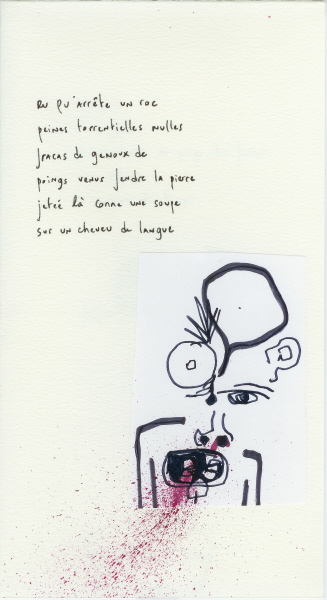 Ru qu'arrête un roc
peines torrentielles nulles
fracas de genoux de
poings venus fendre la pierre
jetée là comme une soupe
sur un cheveu de langue